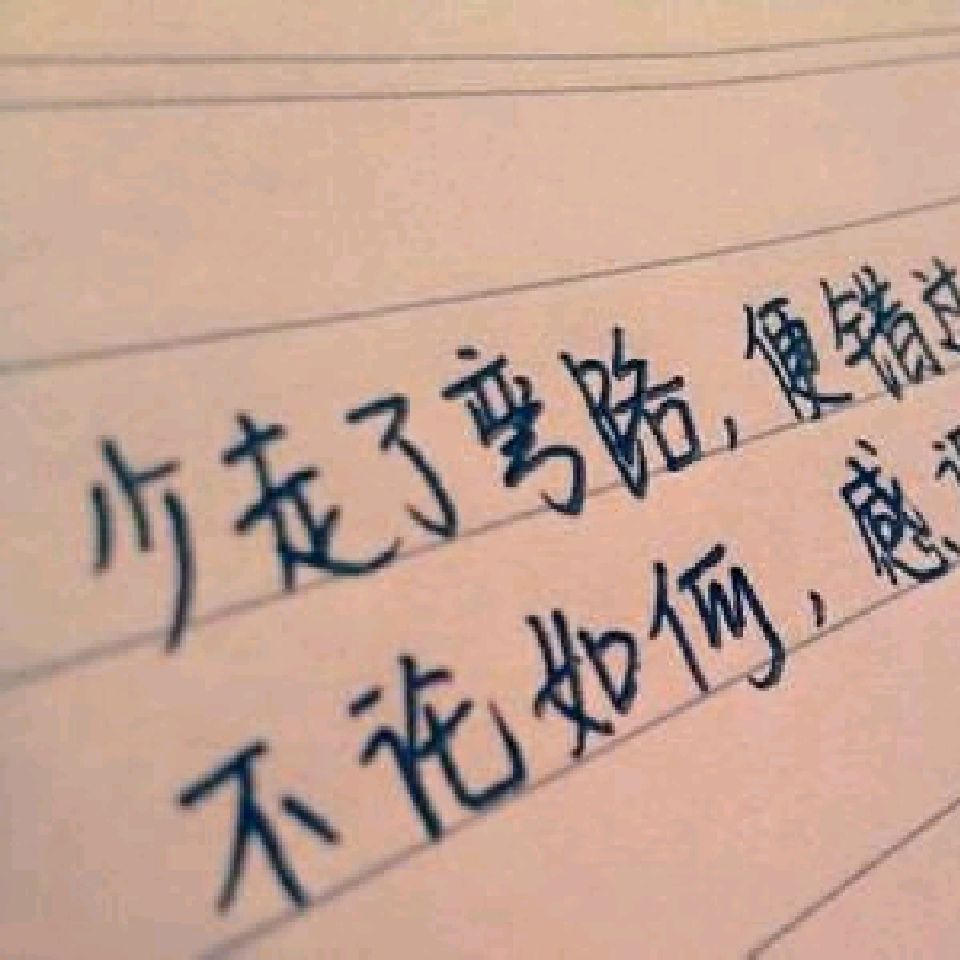 少走了弯路,便错过
不论如何,感